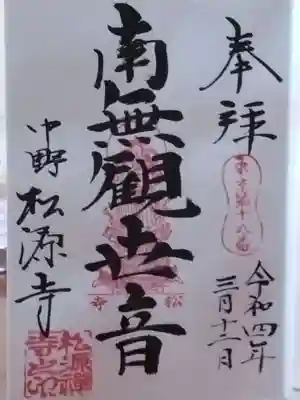 奉拝
令和四年
三月十二日
南無観世音
中野
松源寺
松源禅寺之印